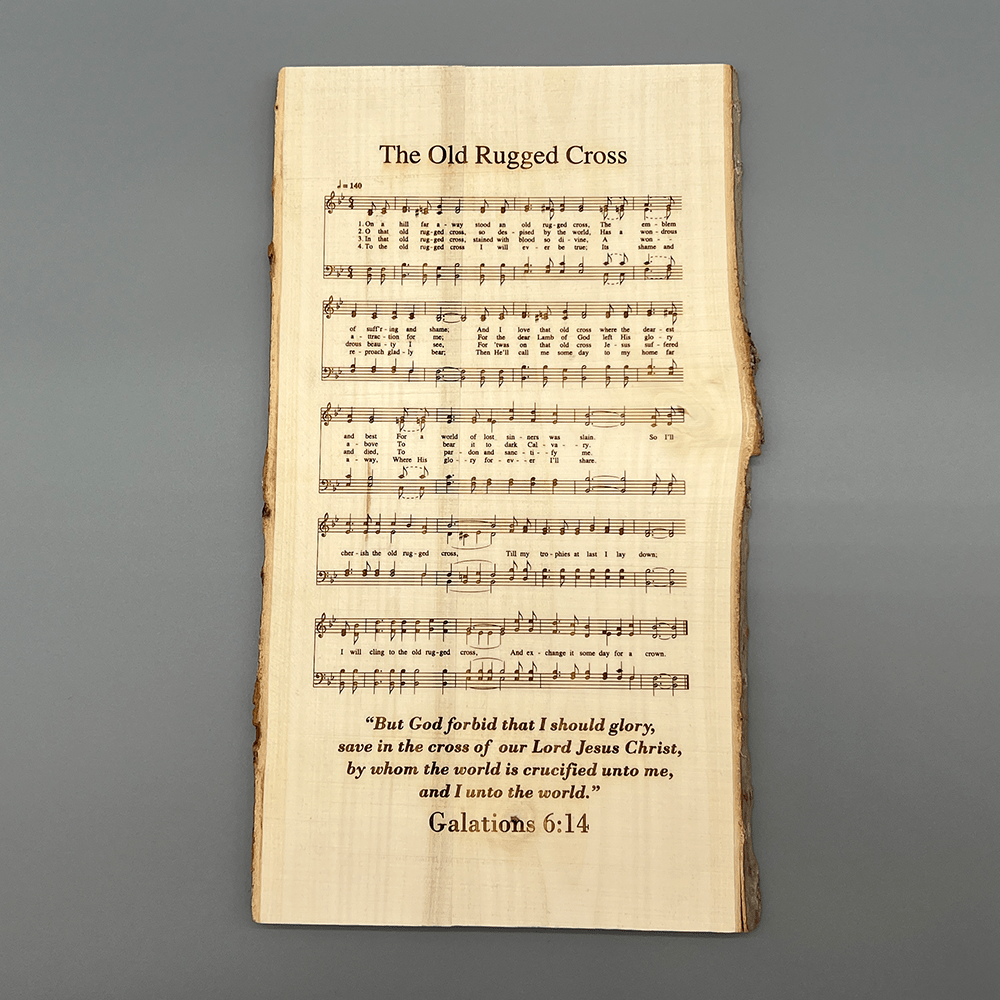 The Old Rugged Cross
♩ = 140
1. On a hill far a - way stood an old rug - ged cross, The em - blem
2. O that old rug - ged cross, so des - pised by the world, Has a won - drous
3. In that old rug - ged cross, stained with blood so di - vine, A won - -
4. To the old rug - ged cross I will ev - er be true; Its shame and
of suff'r - ing and shame; And I love that old cross where the dear - est
a - ttrac - tion for me; For the dear Lamb of God left His glo - ry
drous beau - ty I see, For 'twas on that old cross Je - sus suf - fered
re - proach glad - ly bear; Then He'll call me some day to my home far
and best For a world of lost sin - ners was slain. So I'll
a - bove To bear it to dark Cal - va - ry.
and died, To par - don and sanc - ti - fy me.
a - way, Where His glo - ry for - ev - er I'll share.
cher - ish the old rug - ged cross, Till my tro - phies at last I lay down;
I will cling to the old rug - ged cross, And ex - change it some day for a crown.
“But God forbid that I should glory,
save in the cross of our Lord Jesus Christ,
by whom the world is crucified unto me,
and I unto the world.”
Galations 6:14